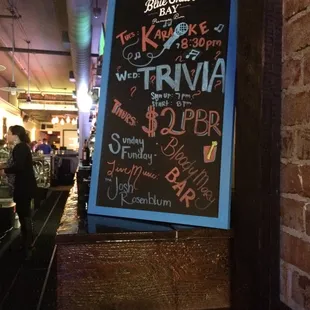 Blue
BAY
Tues: KARAOKE
8:30pm
Wed: TRIVIA
Sign up 7pm
Start: 8pm
Thurs: $2 PBR
Sunday
Funday:
Bloody Mary
BAR
Live Music:
Josh
Rosenblum